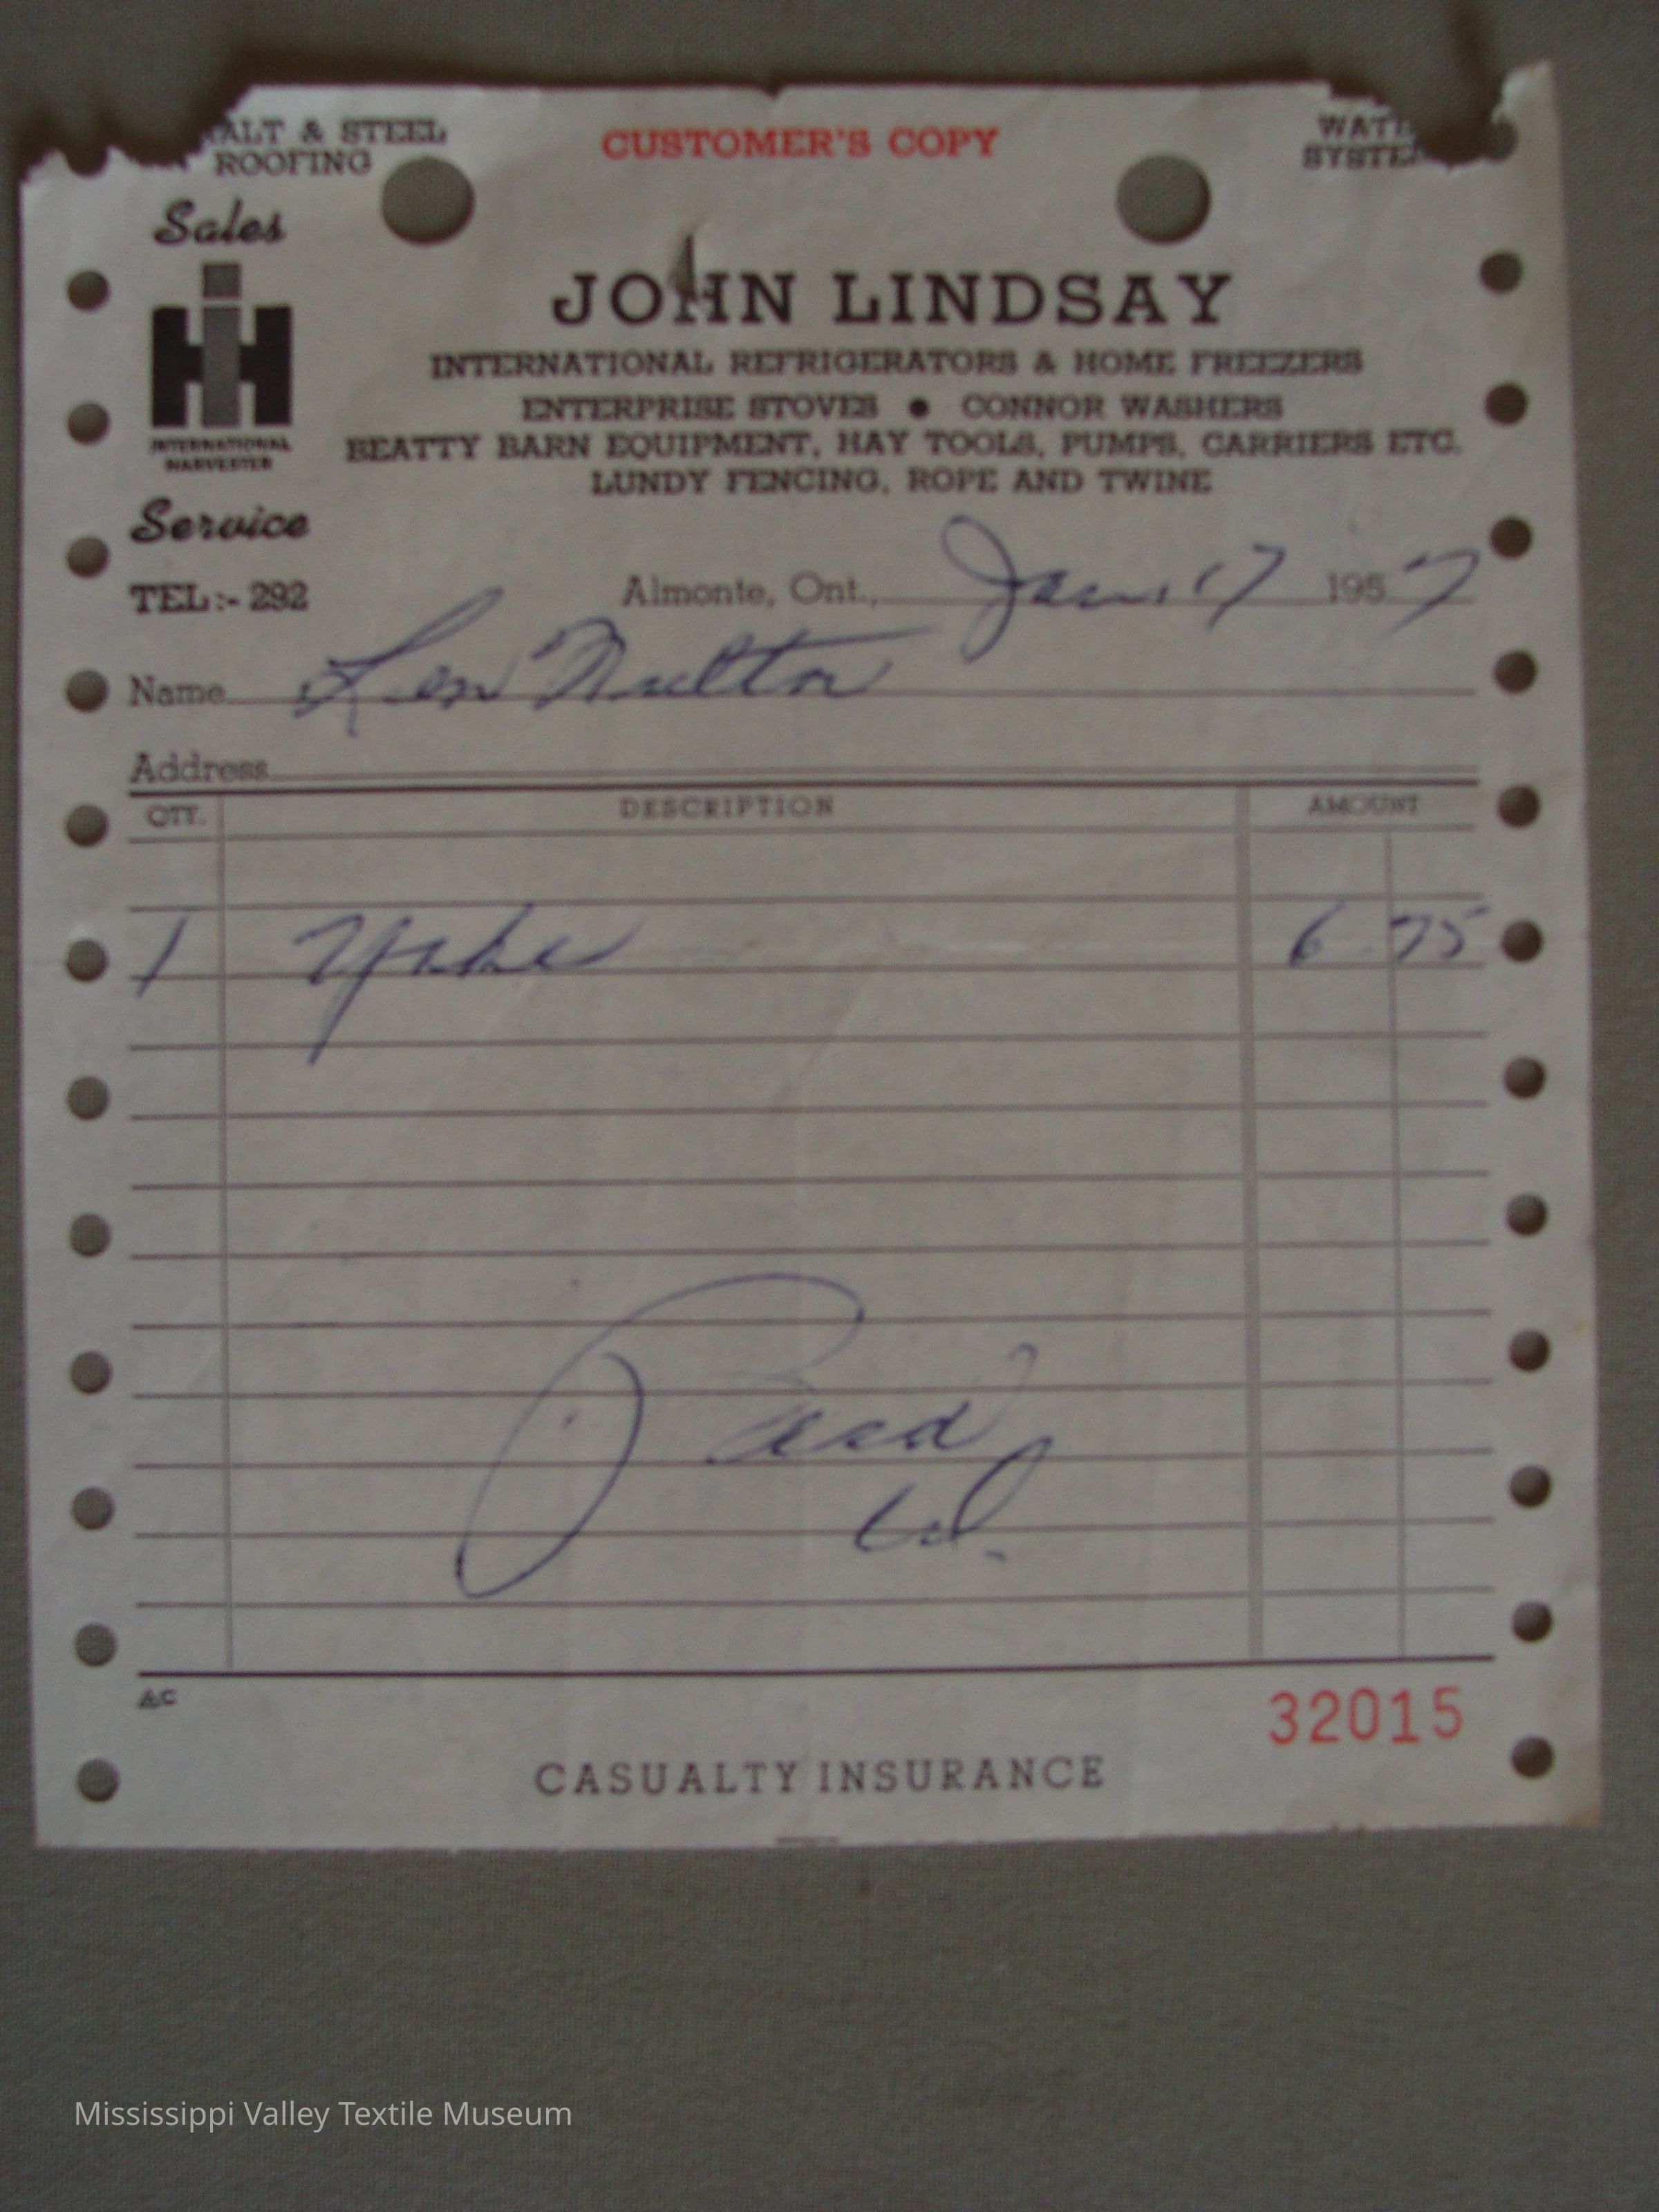 ALT & STEEL
ROOFING
CUSTOMER'S COPY
WAT
SYSTE
Sales
IH
INTERNATIONAL
HARVESTER
Service
TEL:- 292
JOHN LINDSAY
INTERNATIONAL REFRIGERATORS & HOME FREEZERS
ENTERPRISE STOVES ● CONNOR WASHERS
BEATTY BARN EQUIPMENT, HAY TOOLS, PUMPS, CARRIERS ETC.
LUNDY FENCING, ROPE AND TWINE
Almonte, Ont., Jan. 17 1957
Name Len Nulton
Address
QTY. DESCRIPTION AMOUNT
1 Yoke 6.75
Paid
AC
32015
CASUALTY INSURANCE
Mississippi Valley Textile Museum